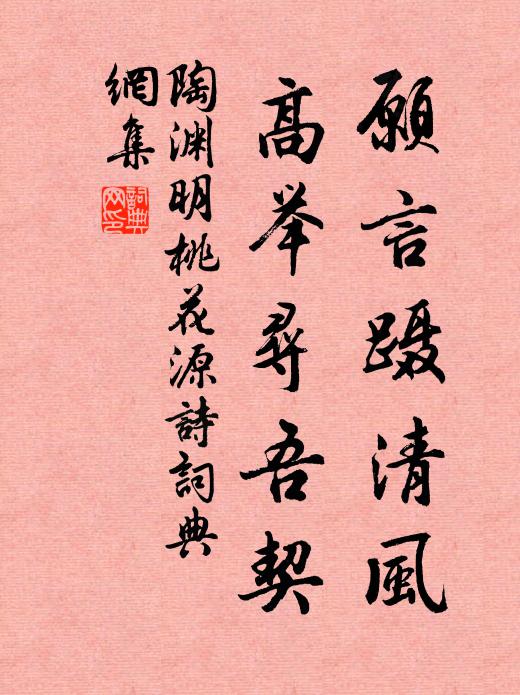 願言蹑清風
高举尋吾契
陶渊明桃花源詩詞典
網集
詞典
网印